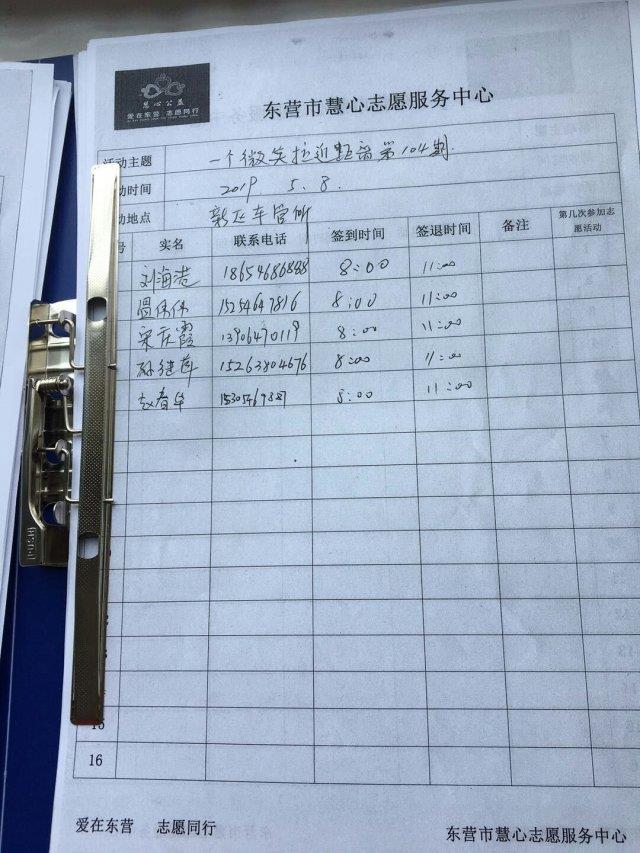 慧心公益
爱在东营 志愿同行
东营市慧心志愿服务中心
活动主题 一个微笑拉近距离第104期
动时间 2019 5.8.
动地点 新区车管所
号 实名 联系电话 签到时间 签退时间 备注 第几次参加志愿活动
刘海浩 18654686888 8:00 11:00
温伟伟 15254647816 8:00 11:00
宋庆霞 13906470119 8:00 11:00
孙继萍 15263804676 8:00 11:00
赵春华 8:00 11:00
15
16
爱在东营 志愿同行 东营市慧心志愿服务中心
PUSH